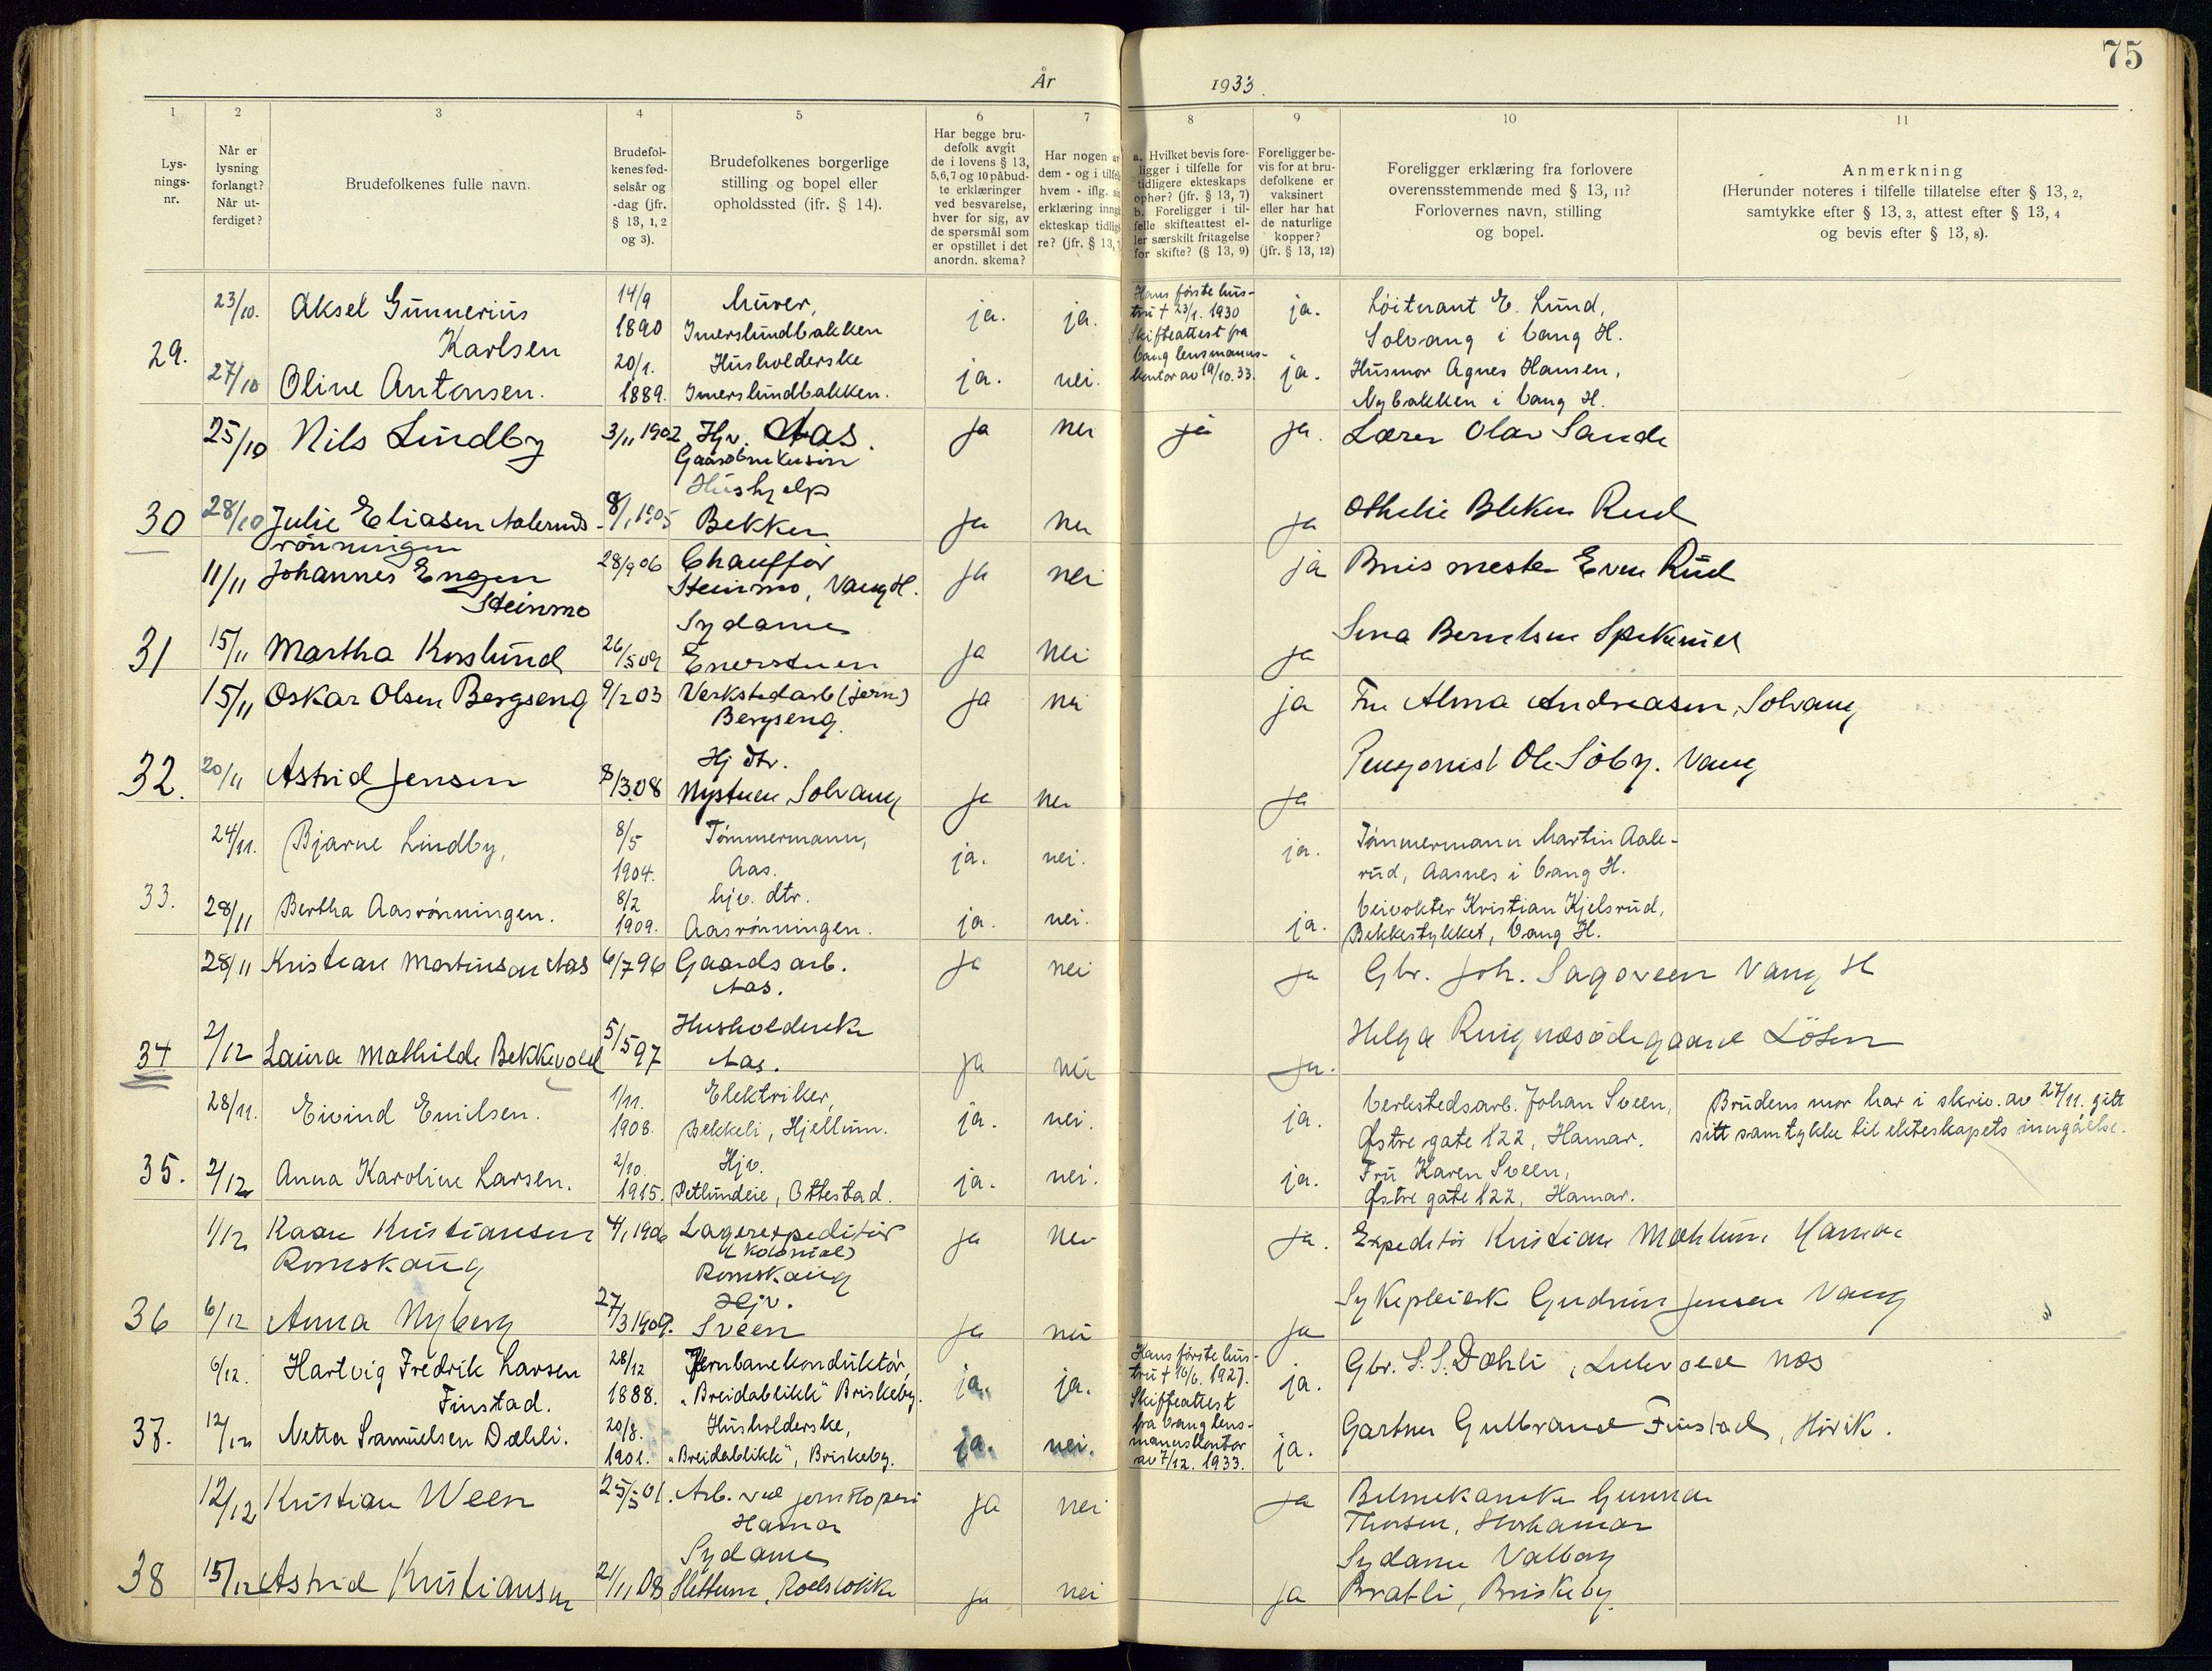 75
År 1933.
1 2 3 4 5 6 7 8 9 10 11
Lysningsnr.
Når er lysning forlangt? Når utferdiget?
Brudefolkenes fulle navn.
Brudefolkenes fødselsår og -dag (jfr. § 13, 1, 2 og 3).
Brudefolkenes borgerlige stilling og bopel eller opholdssted (jfr. § 14).
Har begge brudefolk avgit de i lovens § 13, 5, 6, 7 og 10 påbudte erklæringer ved besvarelse, hver for sig, av de spørsmål som er opstillet i det anordn. skema?
Har nogen av dem - og i tilfelle hvem - iflg.
erklæring inngå
ekteskap tidligere? (jfr. § 13, 7
a. Hvilket bevis foreligger i tilfelle for tidligere ekteskaps ophør? (jfr. § 13, 7)
b. Foreligger i tilfelle skifteattest eller særskilt fritagelse for skifte? (§ 13, 9)
Foreligger bevis for at brudefolkene er vaksinert eller har hat de naturlige kopper? (jfr. § 13, 12)
Foreligger erklæring fra forlovere overensstemmende med § 13, 11? Forlovernes navn, stilling og bopel.
Anmerkning
(Herunder noteres i tilfelle tillatelse efter § 13, 2, samtykke efter § 13, 3, attest efter § 13, 4 og bevis efter § 13, 8).
23/10. Aksel Gunnerius Karlsen 14/9 1890 Murer, Imerslundbakken ja. ja. Hans første hustru † 23/1. 1930 Skifteattest fra Vang lensmannskontor av 19/10. 33. ja. Løitnant E. Lund, Solvang i Vang H.
29. 27/10 Oline Antonsen. 20/1. 1889. Husholderske Imerslundbakken. ja. nei. ja. Husmor Agnes Hansen, Nybakken i Vang H.
25/10 Nils Lindby 3/11 1902 Hjv. Aas. Gaardbrukersøn ja nei ja ja. Lærer Olav Sande
30 28/10 Julie Eliasen Aalerudsrönningen 8/1 1905 Hushjelp Bekken ja nei ja Othelie Bleken Rud
11/11 Johannes Engen Steinmo 28/9 06 Chauffør Steinmo, Vang H. ja nei ja Even Rud
31 15/11 Martha Korslund 26/5 09 Sydame Enerstuen ja nei ja
15/11 Oskar Olsen Bergseng 9/2 03 Verkstedarb (jern) Bergseng. ja nei ja Fru Alma Andreasen, Solvang
32. 20/11 Astrid Jensen 8/3 08 Hj dtr. Nystuen, Solvang ja nei ja Pensjonist Ole Söby. Vang
24/11. Bjarne Lindby, 8/5 1904. Tömmermann, Aas. ja. nei. ja. Tömmermann Martin Aalerud, Aasnes i Vang H.
33. 28/11 Bertha Aasrönningen. 8/2 1909. hjv. dtr. Aasrönningen. ja. nei. ja. Veivokter Kristian Kjelsrud, Bekkestykket, Vang H.
28/11 Kristian Martinsen Aas 6/7 96 Gaardsarb. Aas. ja nei ja Gbr. Joh. Sagsveen Vang H
34 2/12 Laura Mathilde Bekkevold 5/5 97 Husholderske Aas. ja nei ja. Helga Ringnæsödegaard Löten
28/11. Eivind Emilsen. 1/11. 1908. Elektriker, Bekkeli, Hjellum. ja. nei. ja. Verkstedsarb. Johan Sveen, Østre gate 122, Hamar. Brudens mor har i skriv. av 27/11. gitt sitt samtykke til ekteskapets inngåelse.
35. 2/12 Anna Karoline Larsen. 2/10. 1915. Hjv. Petlundeie, Ottestad. ja. nei. ja. Fru Karen Sveen, Østre gate 122, Hamar.
1/12 Kaare Kristiansen Romskaug 4/1 1906 Lagerexpeditör (Kolonial) Romskaug ja nei ja. Expeditör Kristian Mæhlum Hamar
36 6/12 Anna Nyberg 27/3 1909. Hjv. Sveen ja nei ja Sykepleiersk Gudrun Jensen Vang
6/12. Hartvig Fredrik Larsen Finstad. 28/12 1888. Jernbanekonduktör, "Breidablikk" Briskeby. ja. ja. Hans første hustru † 16/6. 1927. Skifteattest fra Vang lensmannskontor av 7/12. 1933. ja. Gbr. S. S. Dæhli, Nes
37. 12/12 Netta Samuelsen Dæhli. 20/8. 1901. Husholderske, "Breidablikk", Briskeby. ja. nei. ja. Gartner Gulbrand Finstad,
12/12 Kristian Ween 25/5 01. Arb. ved jernstöperi Hamar ja nei ja Bilmekaniker Gunnar Thorsen, Storhamar
38 15/12 Astrid Kristiansen 21/11 08 Sydame Slettum, ja nei ja Sydame Valborg Bratli, Briskeby.